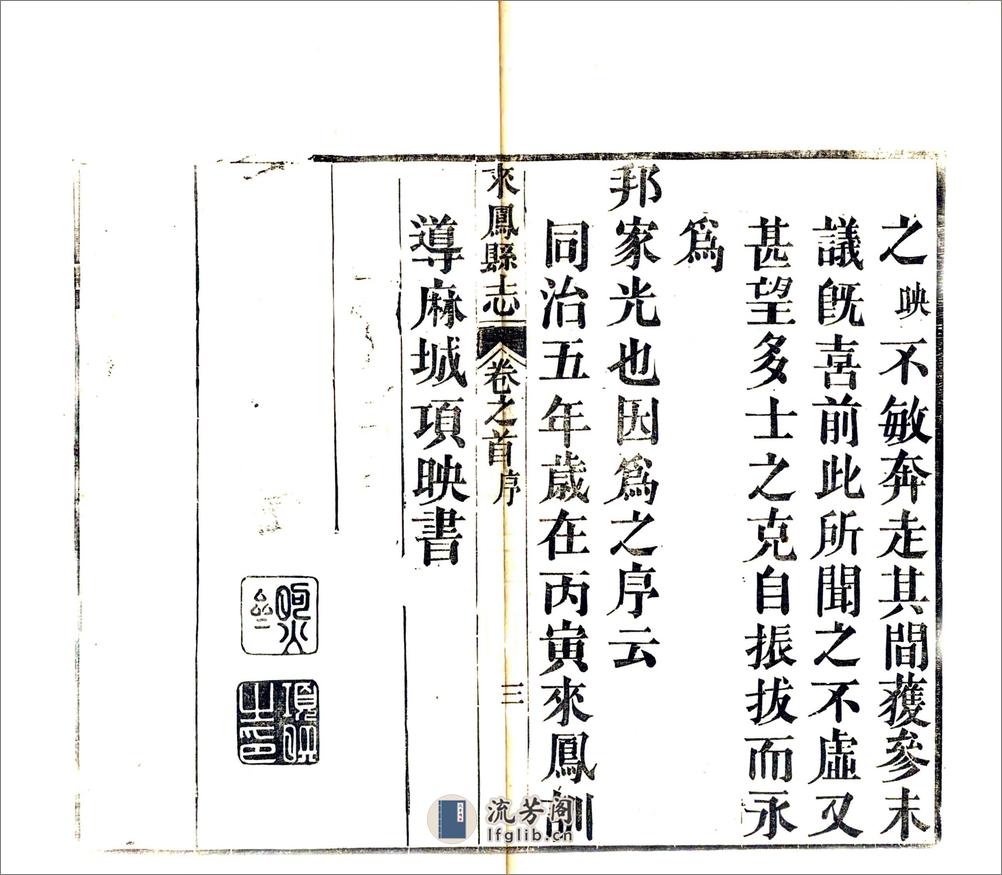 之映不敏奔走其間獲參末
議旣喜前此所聞之不虛又
甚望多士之克自振拔而永
爲
邦家光也因爲之序云
同治五年歲在丙寅來鳳訓
來鳳縣志 卷之首 序 三
導麻城項映書
流芳阁
lfglib.cn